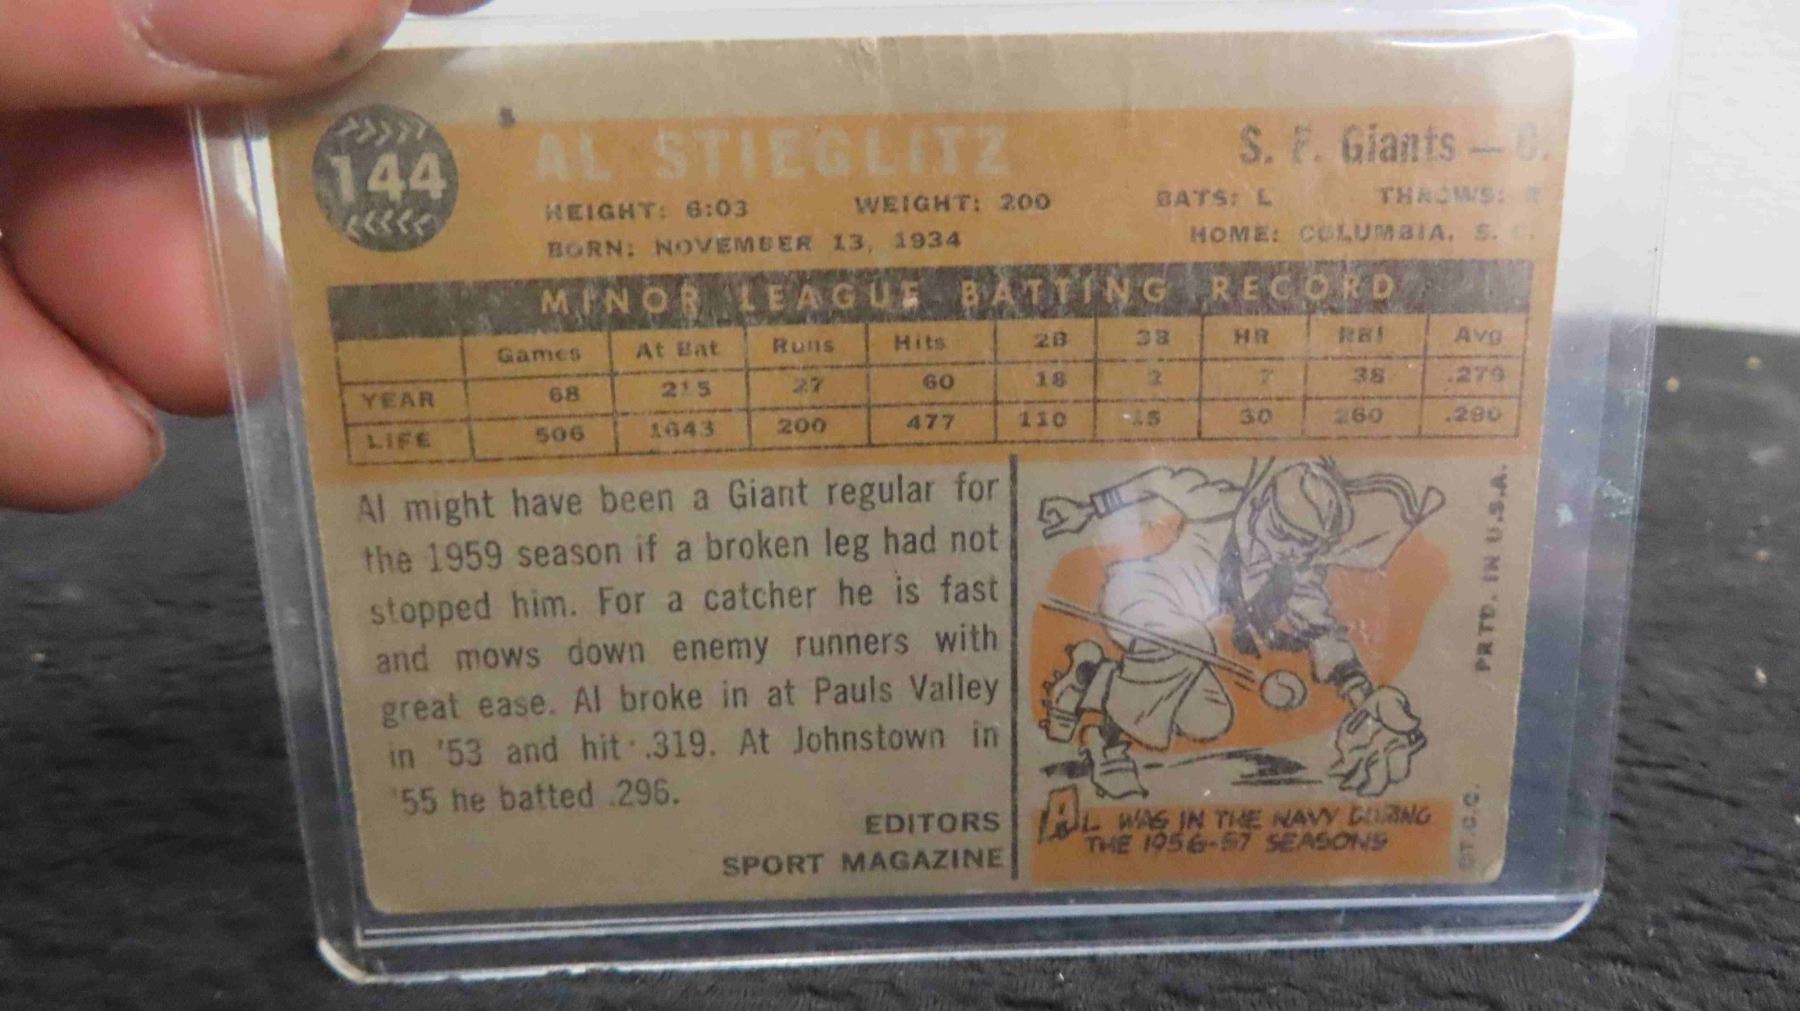 144
AL STIEGLITZ
S. F. Giants — C.
HEIGHT: 6:03 WEIGHT: 200 BATS: L THROWS: R
BORN: NOVEMBER 13, 1934 HOME: COLUMBIA, S. C.
MINOR LEAGUE BATTING RECORD
Games At Bat Runs Hits 2B 3B HR RBI Avg
YEAR 68 215 27 60 18 2 7 38 .279
LIFE 506 1643 200 477 110 15 30 260 .290
Al might have been a Giant regular for
the 1959 season if a broken leg had not
stopped him. For a catcher he is fast
and mows down enemy runners with
great ease. Al broke in at Pauls Valley
in '53 and hit .319. At Johnstown in
'55 he batted .296.
EDITORS
SPORT MAGAZINE
AL WAS IN THE NAVY DURING
THE 1956-57 SEASONS
©T.C.G. PRTD. IN U.S.A.